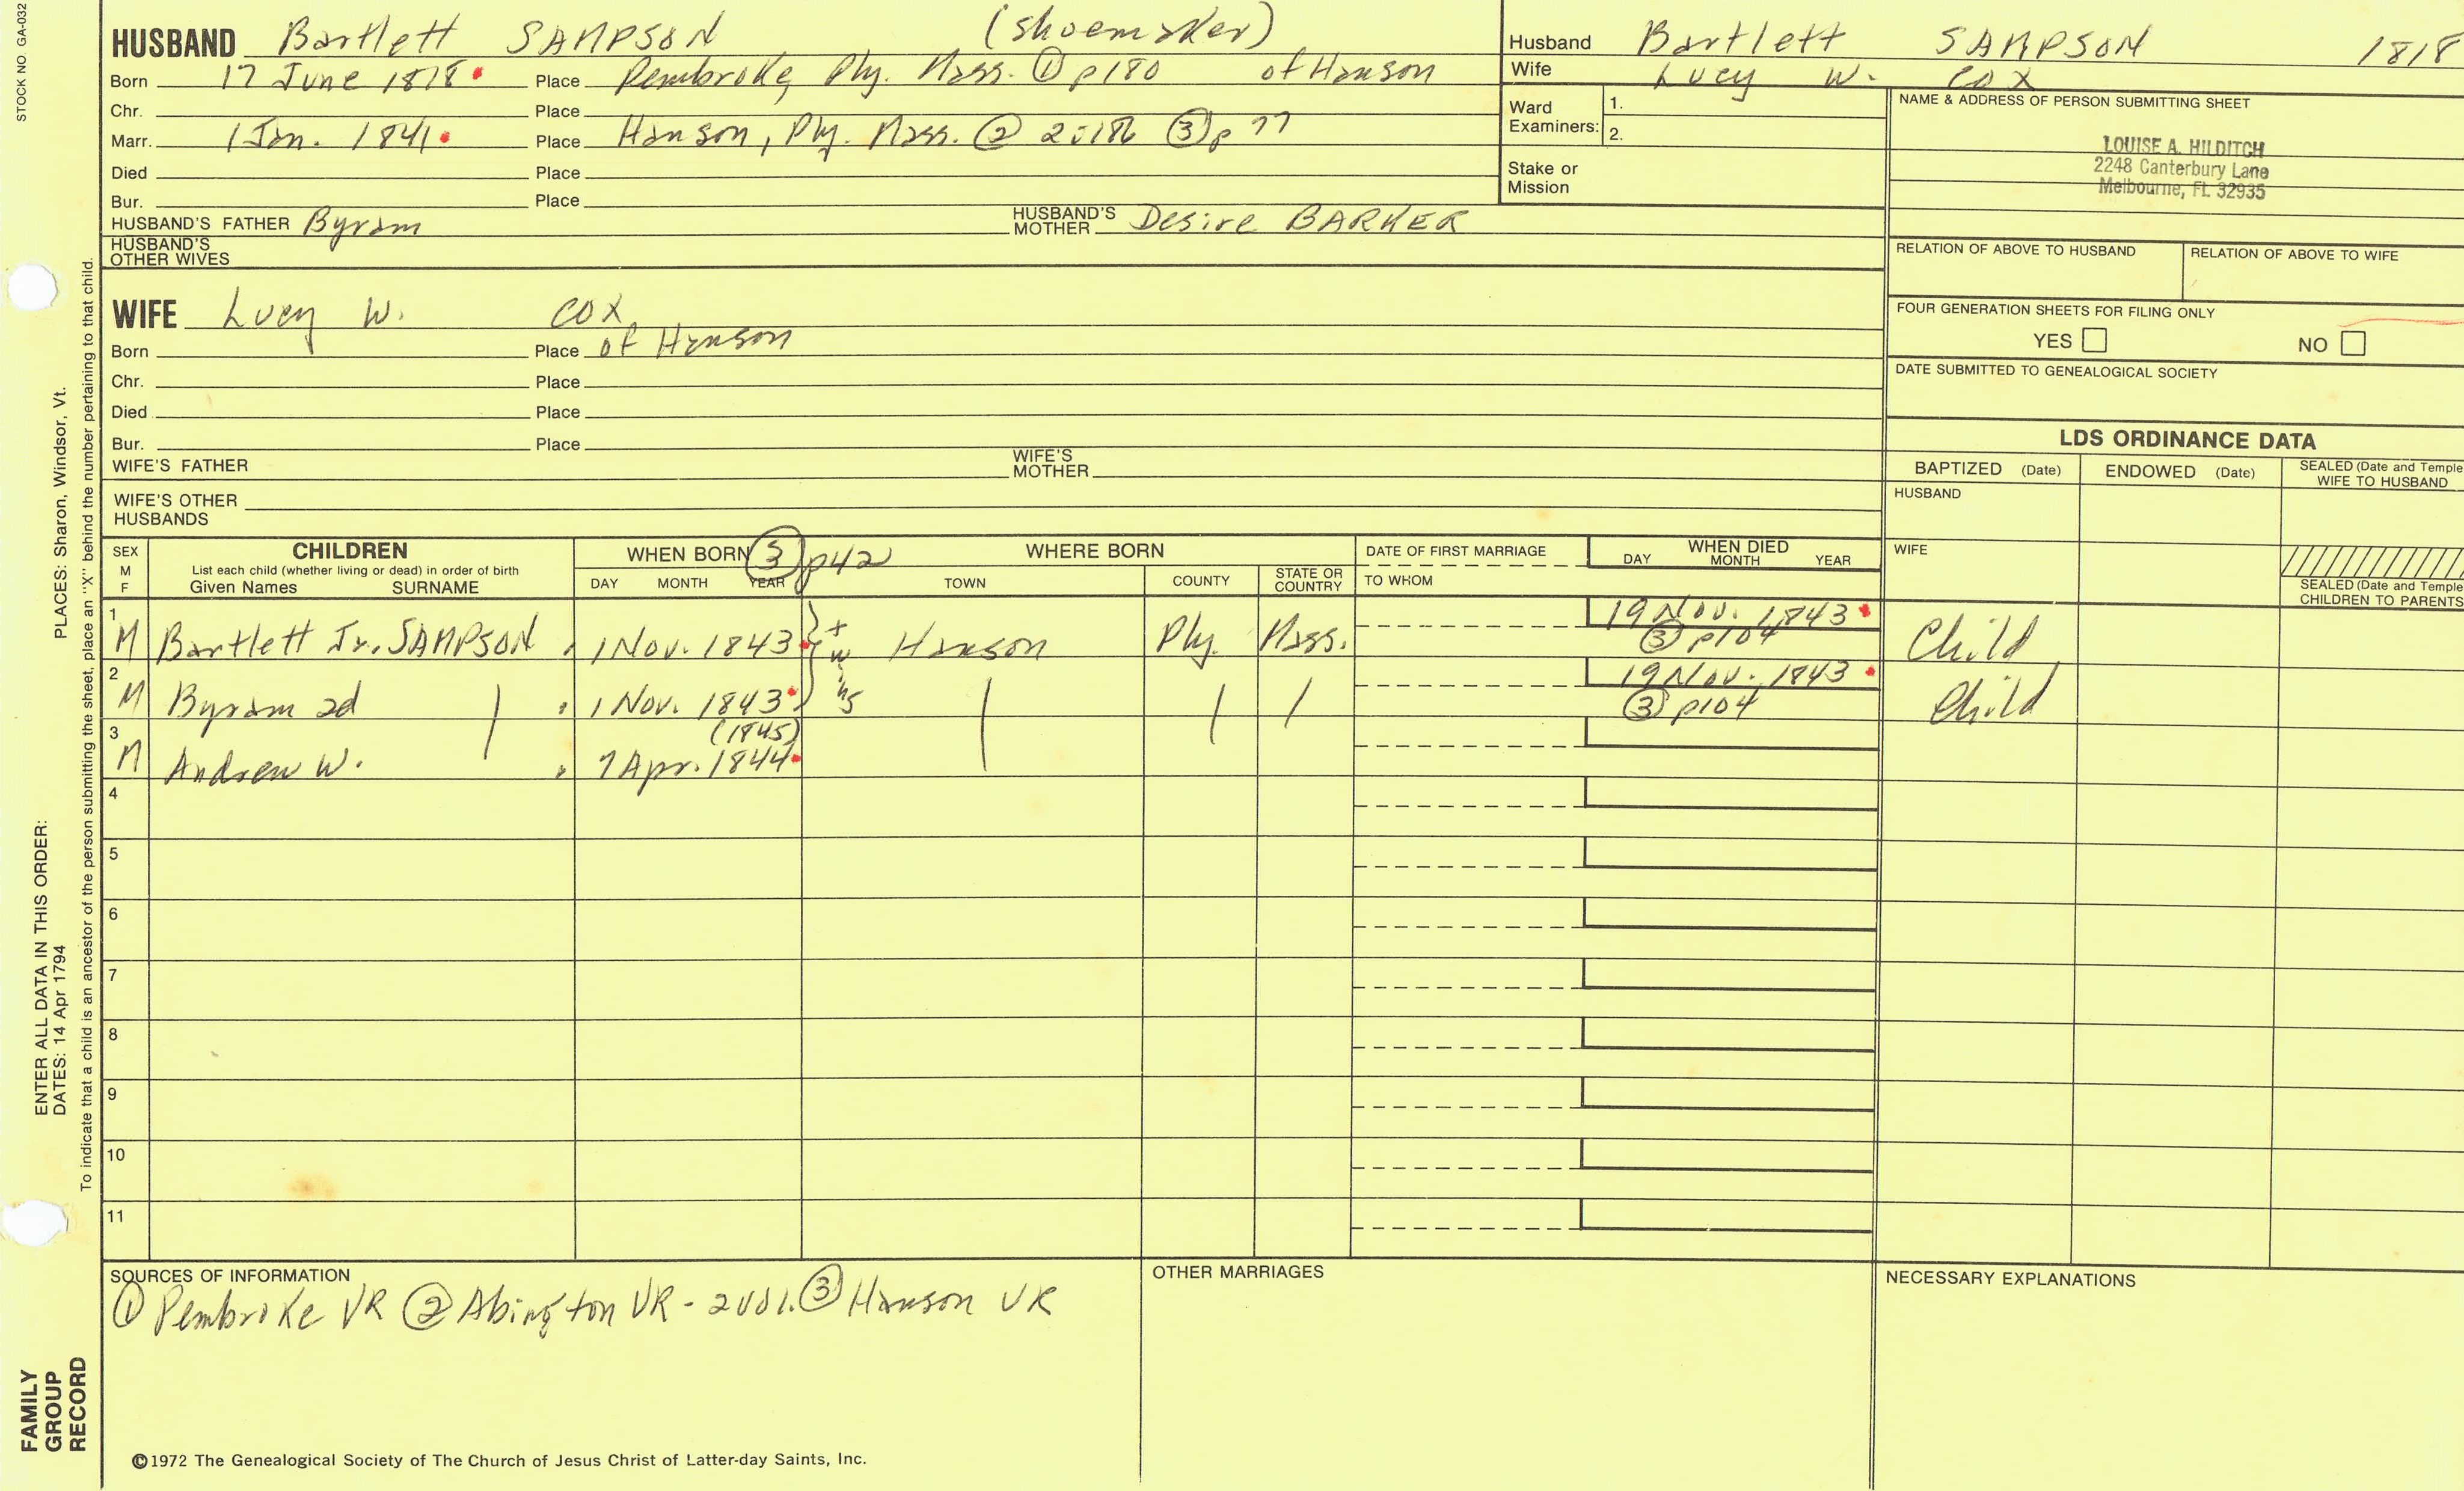 STOCK NO. GA-032
HUSBAND Bartlett SAMPSON (shoemaker)
Born 17 June 1818 Place Pembroke, Ply. Mass. ① p180 of Hanson
Chr. Place
Marr. 1 Jan. 1841 Place Hanson, Ply. Mass. ② 2:186 ③ p 77
Died Place
Bur. Place
HUSBAND'S FATHER Byram HUSBAND'S MOTHER Desire BARKER
HUSBAND'S OTHER WIVES
Husband Bartlett SAMPSON 1818
Wife Lucy W. COX
Ward Examiners: 1.
2.
Stake or Mission
NAME & ADDRESS OF PERSON SUBMITTING SHEET
LOUISE A. HILDITCH
2248 Canterbury Lane
Melbourne, FL 32935
RELATION OF ABOVE TO HUSBAND RELATION OF ABOVE TO WIFE
FOUR GENERATION SHEETS FOR FILING ONLY
YES NO
DATE SUBMITTED TO GENEALOGICAL SOCIETY
WIFE Lucy W. COX
Born Place of Hanson
Chr. Place
Died Place
Bur. Place
WIFE'S FATHER WIFE'S MOTHER
WIFE'S OTHER HUSBANDS
LDS ORDINANCE DATA
BAPTIZED (Date) ENDOWED (Date) SEALED (Date and Temple
WIFE TO HUSBAND
HUSBAND
WIFE
SEALED (Date and Temple
CHILDREN TO PARENTS
SEX M F
CHILDREN
List each child (whether living or dead) in order of birth
Given Names SURNAME
WHEN BORN ③ p42
DAY MONTH YEAR
WHERE BORN
TOWN COUNTY STATE OR COUNTRY
DATE OF FIRST MARRIAGE
TO WHOM
WHEN DIED
DAY MONTH YEAR
1 M Bartlett Jr. SAMPSON 1 Nov. 1843 twins Hanson Ply. Mass. 19 Nov. 1843 ③ p104 Child
2 M Byram 2d 1 Nov. 1843 19 Nov. 1843 ③ p104 Child
3 M Andrew W. (1845) 7 Apr. 1844
4
5
6
7
8
9
10
11
SOURCES OF INFORMATION
① Pembroke VR ② Abington VR - 2 vol. ③ Hanson VR
OTHER MARRIAGES
NECESSARY EXPLANATIONS
©1972 The Genealogical Society of The Church of Jesus Christ of Latter-day Saints, Inc.
FAMILY GROUP RECORD
ENTER ALL DATA IN THIS ORDER:
DATES: 14 Apr 1794 PLACES: Sharon, Windsor, Vt.
To indicate that a child is an ancestor of the person submitting the sheet, place an "X" behind the number pertaining to that child.